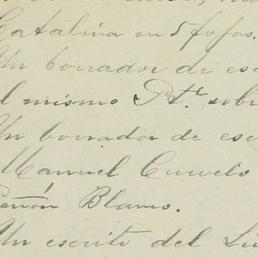 Catalina en 5 fojas.
Un borrador de es
el mismo Pte. sobr
Un borrador de esc
Manuel Curvelo
Peñón Blanco.
Un escrito del Li